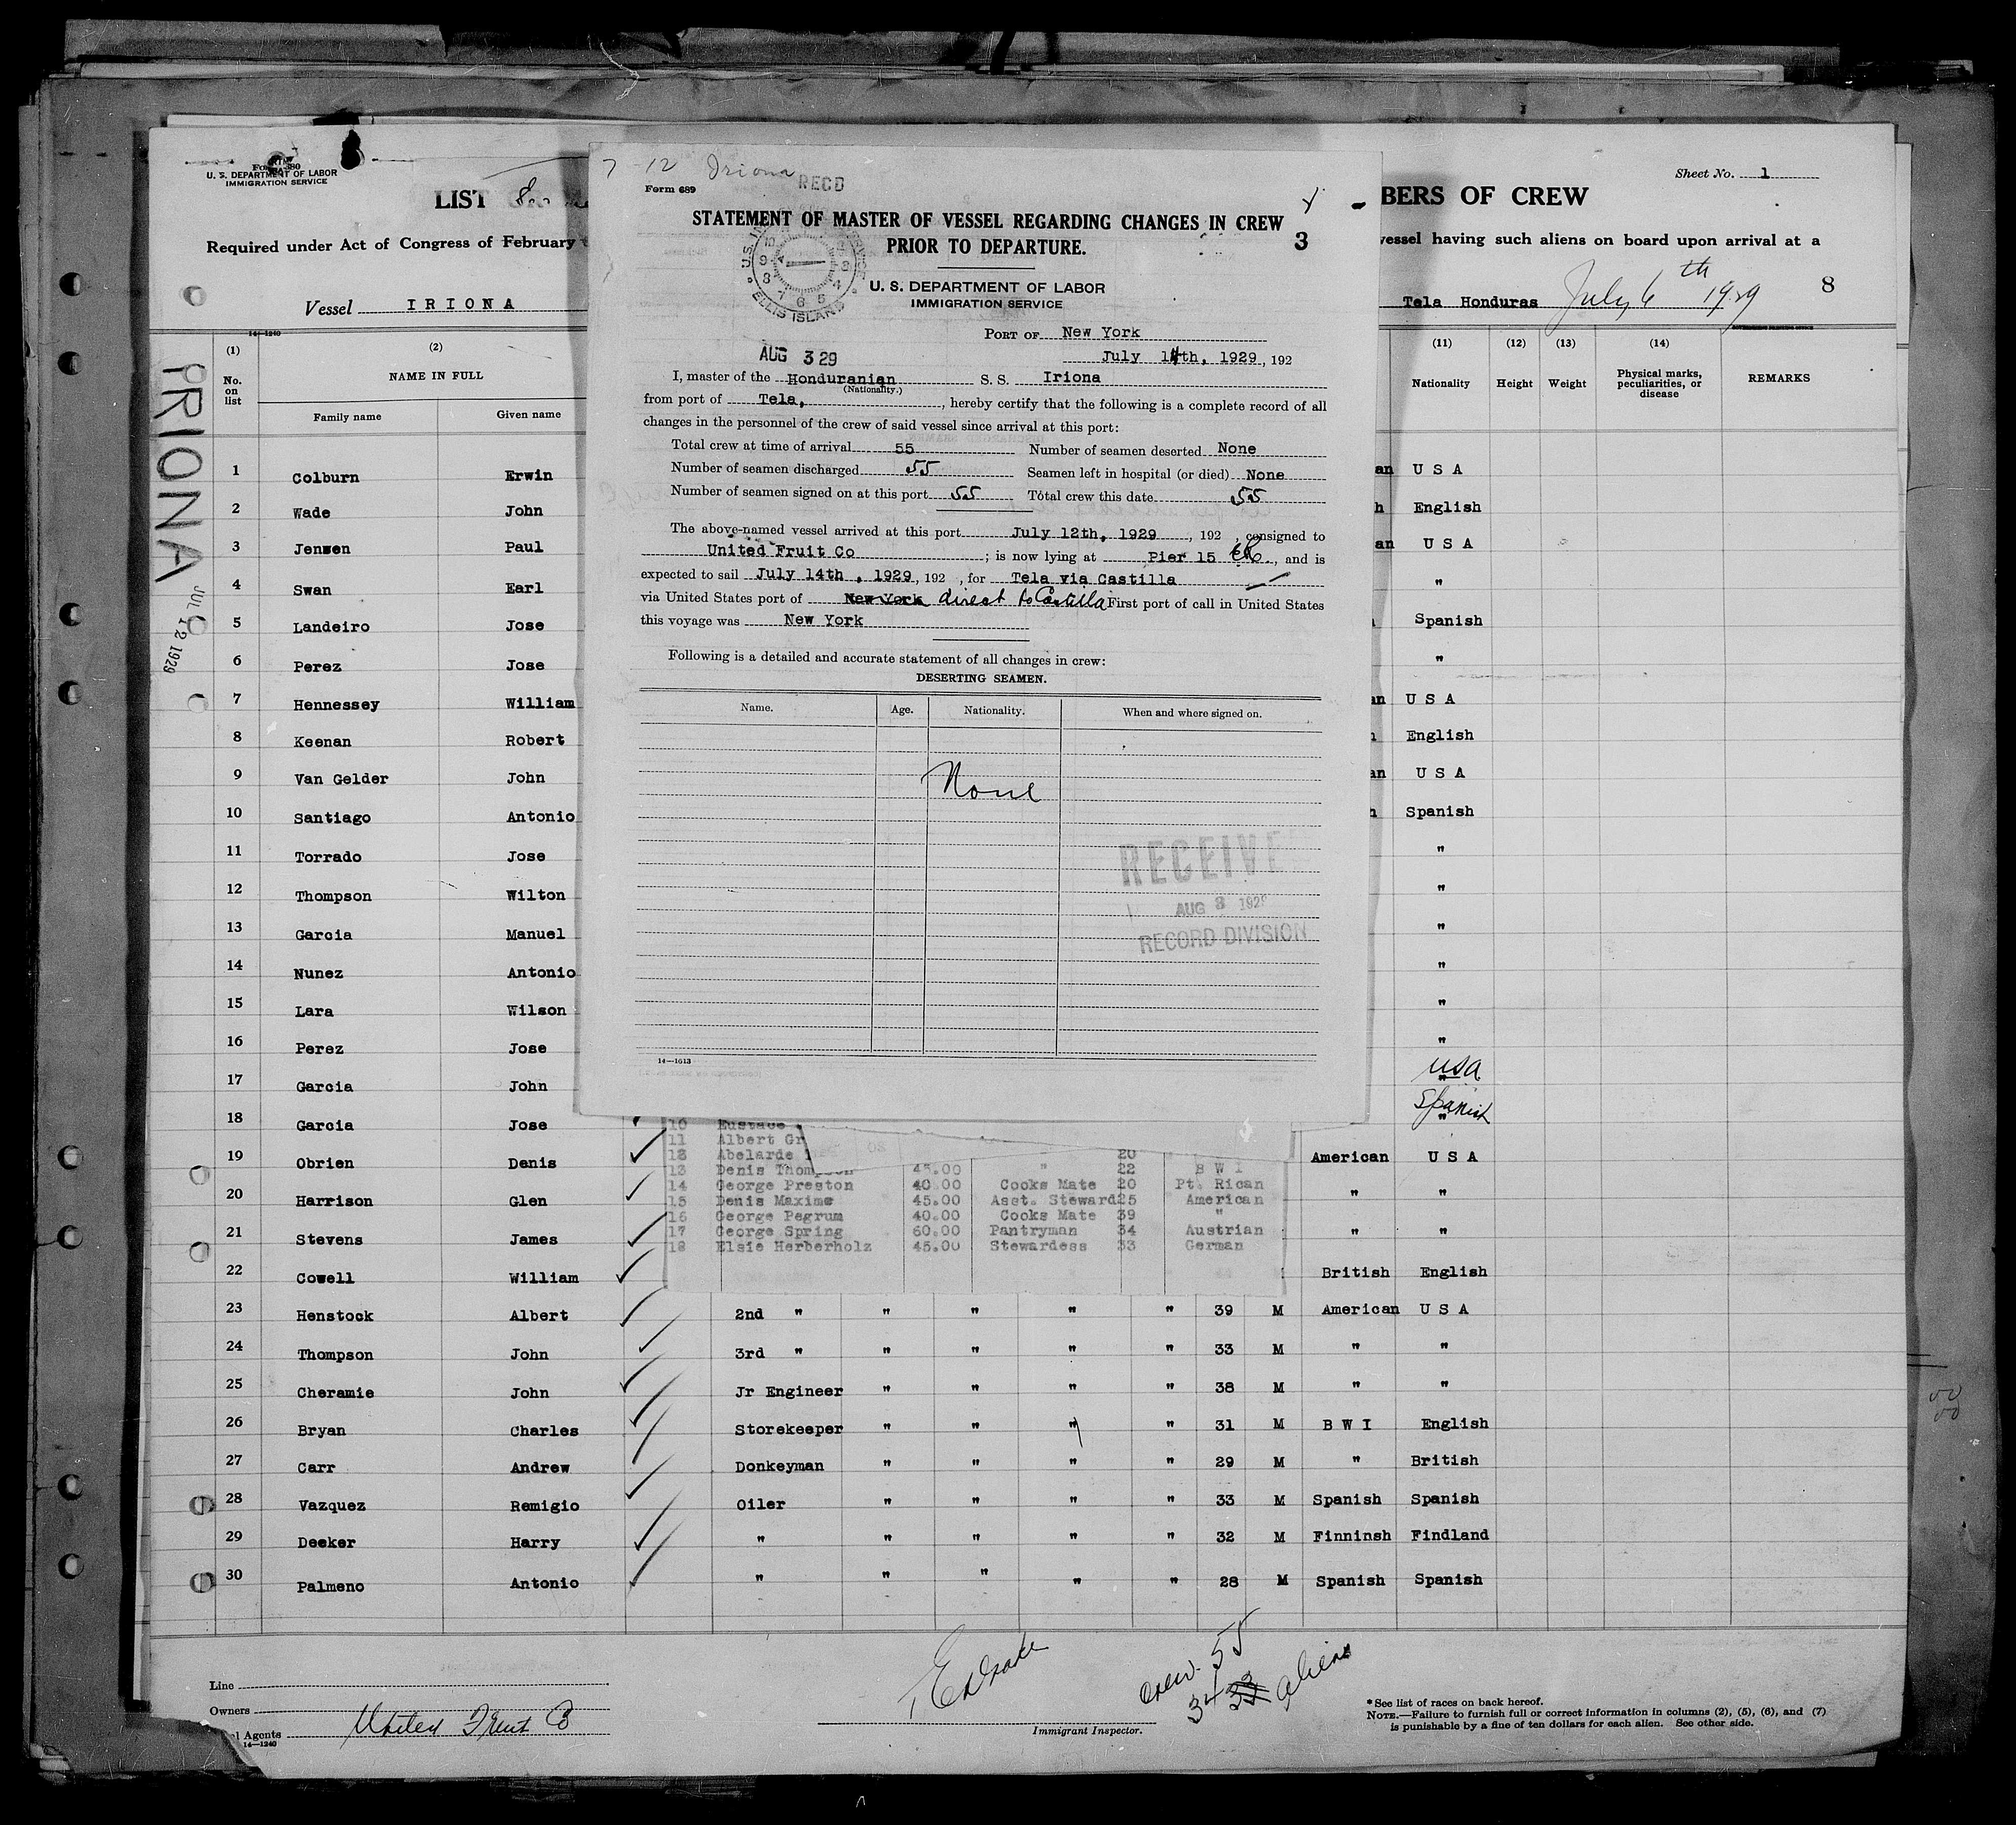 U. S. DEPARTMENT OF LABOR
IMMIGRATION SERVICE
LIST
Required under Act of Congress of February
Vessel IRIONA
14—1240
(1) (2)
No. on list
NAME IN FULL
Family name Given name
IRIONA
JUL 12 1929
1 Colburn Erwin
2 Wade John
3 Jensen Paul
4 Swan Earl
5 Landeiro Jose
6 Perez Jose
7 Hennessey William
8 Keenan Robert
9 Van Gelder John
10 Santiago Antonio
11 Torrado Jose
12 Thompson Wilton
13 Garcia Manuel
14 Nunez Antonio
15 Lara Wilson
16 Perez Jose
17 Garcia John
18 Garcia Jose
19 Obrien Denis
20 Harrison Glen
21 Stevens James
22 Cowell William
23 Henstock Albert
24 Thompson John
25 Cheramie John
26 Bryan Charles
27 Carr Andrew
28 Vazquez Remigio
29 Deeker Harry
30 Palmeno Antonio
7-12 Iriona
RECD
Form 689
STATEMENT OF MASTER OF VESSEL REGARDING CHANGES IN CREW
PRIOR TO DEPARTURE.
3
ELLIS ISLAND
U. S. DEPARTMENT OF LABOR
IMMIGRATION SERVICE
PORT OF New York
AUG 3 29
July 14th, 1929, 192
I, master of the Honduranian S. S. Iriona
(Nationality.)
from port of Tela, , hereby certify that the following is a complete record of all
changes in the personnel of the crew of said vessel since arrival at this port:
Total crew at time of arrival 55 Number of seamen deserted None
Number of seamen discharged 55 Seamen left in hospital (or died) None
Number of seamen signed on at this port 55 Total crew this date 55
The above-named vessel arrived at this port July 12th, 1929 , 192 , consigned to
United Fruit Co ; is now lying at Pier 15 ER , and is
expected to sail July 14th , 1929, 192 , for Tela via Castilla
via United States port of New York direct to Castilla First port of call in United States
this voyage was New York
Following is a detailed and accurate statement of all changes in crew:
DESERTING SEAMEN.
Name. Age. Nationality. When and where signed on.
None
RECEIVE
AUG 3 192
RECORD DIVISION
14—1613
10 Eustace
11 Albert Gr
12 Abelarde 20
13 Denis Thom 45.00 " 22 B W I
14 George Preston 40.00 Cooks Mate 20 Pt. Rican
15 Denis Maxime 45.00 Asst. Steward 25 American
16 George Pegrum 40.00 Cooks Mate 39 "
17 George Spring 60.00 Pantryman 34 Austrian
18 Elsie Herberholz 45.00 Stewardess 33 German
Sheet No. 1
BERS OF CREW
vessel having such aliens on board upon arrival at a
Tela Honduras July 6th 1929
8
(11) (12) (13) (14)
Nationality Height Weight Physical marks, peculiarities, or disease REMARKS
an U S A
h English
an U S A
"
Spanish
"
an U S A
English
an U S A
Spanish
"
"
"
"
"
"
USA
Spanish
American U S A
" "
" "
British English
2nd " " " " " 39 M American U S A
3rd " " " " " 33 M " "
Jr Engineer " " " " 38 M " "
Storekeeper " " " " 31 M B W I English
Donkeyman " " " " 29 M " British
Oiler " " " " 33 M Spanish Spanish
" " " " " 32 M Finninsh Findland
" " " " " 28 M Spanish Spanish
Line
Owners
Agents United Fruit Co
14—1240
Immigrant Inspector.
crew 55
34 aliens
* See list of races on back hereof.
NOTE.—Failure to furnish full or correct information in columns (2), (5), (6), and (7)
is punishable by a fine of ten dollars for each alien. See other side.